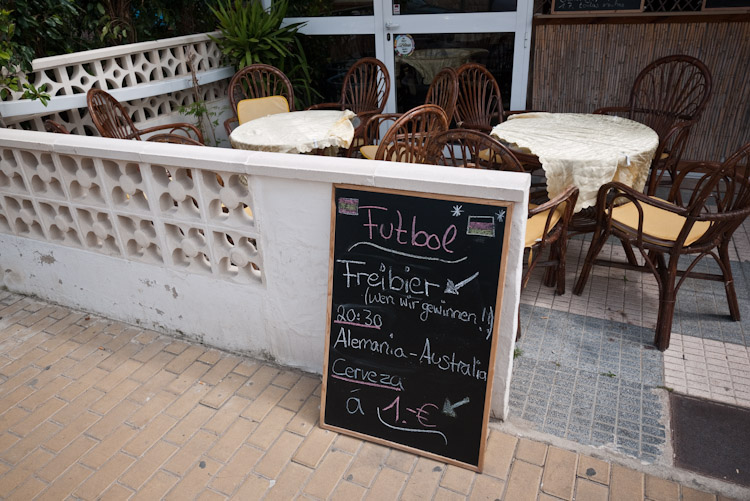 Futbol
Freibier
(wen wir gewinnen!!)
20:30
Alemania-Australia
Cerveza
á 1.-€